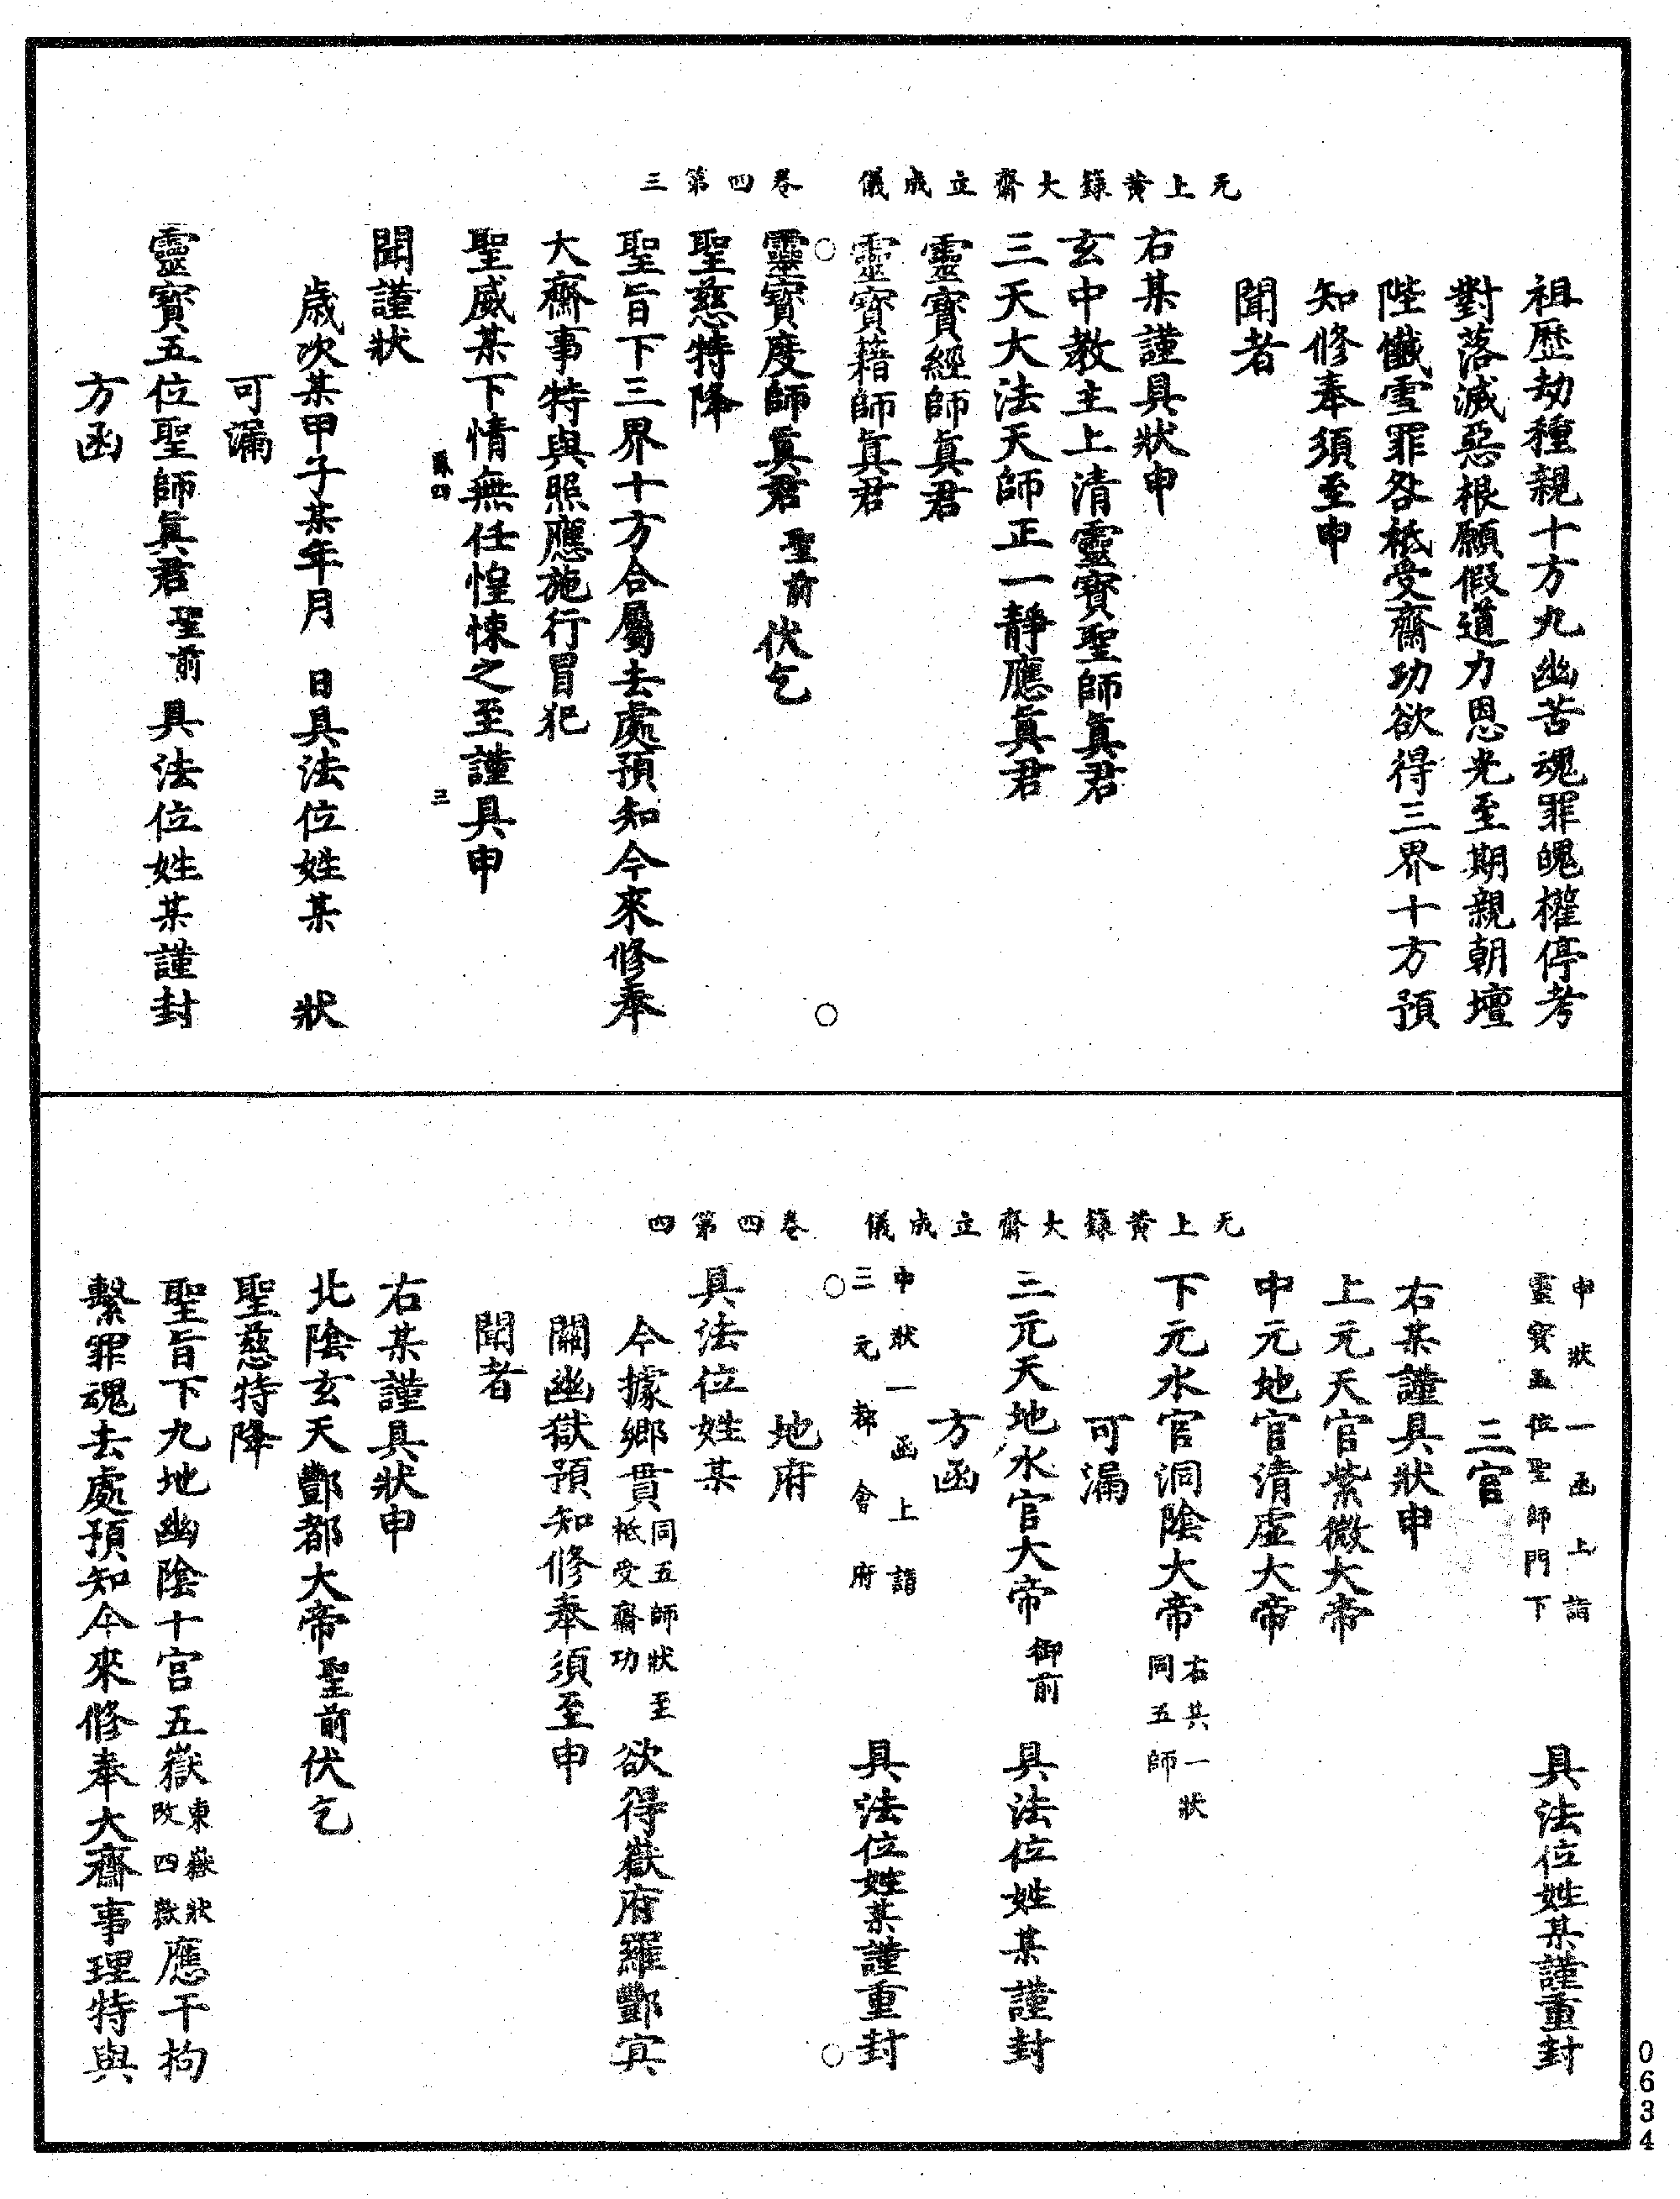 无上黃籙大齋立成儀　卷四第三
祖歷劫種親十方九幽苦魂罪魄權停考
對落滅惡根願假道力恩光至期親朝壇
陛懺雪罪咎祇受齋功欲得三界十方預
知修奉須至申
聞者
右某謹具狀申
玄中教主上清靈寶聖師眞君
三天大法天師正一靜應眞君
靈寶經師眞君
靈寶籍師眞君
靈寶度師眞君聖前伏乞
聖慈特降
聖旨下三界十方合屬去處預知今來修奉
大齋事特與照應施行冒犯
聖威某下情無任惶悚之至謹具申
四　三
聞謹狀
歲次某甲子某年月　日具法位姓某　狀
可漏
靈寶五位聖師眞君聖前　具法位姓某謹封
方函
无上黃籙大齋立成儀　卷四第四
申狀一函上詣
靈寶五位聖師門下　具法位姓某謹重封
三官
右某謹具狀申
上元天官紫微大帝
中元地官清虛大帝
下元水官洞陰大帝右共一狀同五師
可漏
三元天地水官大帝御前　具法位姓某謹封
方函
申狀一函上詣
三元都會府　具法位姓某謹重封
地府
具法位姓某
今據鄉貫同五師狀至祇受齋功欲得嶽府羅酆冥
關幽獄預知修奉須至申
聞者
右某謹具狀申
北陰玄天酆都大帝聖前伏乞
聖慈特降
聖旨下九地幽陰十宮五嶽東嶽狀改四嶽應干拘
繫罪魂去處預知今來修奉大齋事理特與
0634